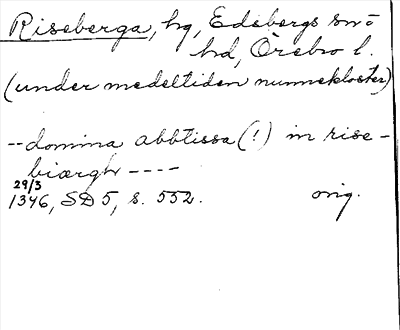 Riseberga, hg, Edsbergs sn o
hd, Örebro l.
(under medeltiden nunnekloster)
-- domina abbtissa (!) in rise-
biærgh ----
29/3
1346, SD 5, s. 552. orig.